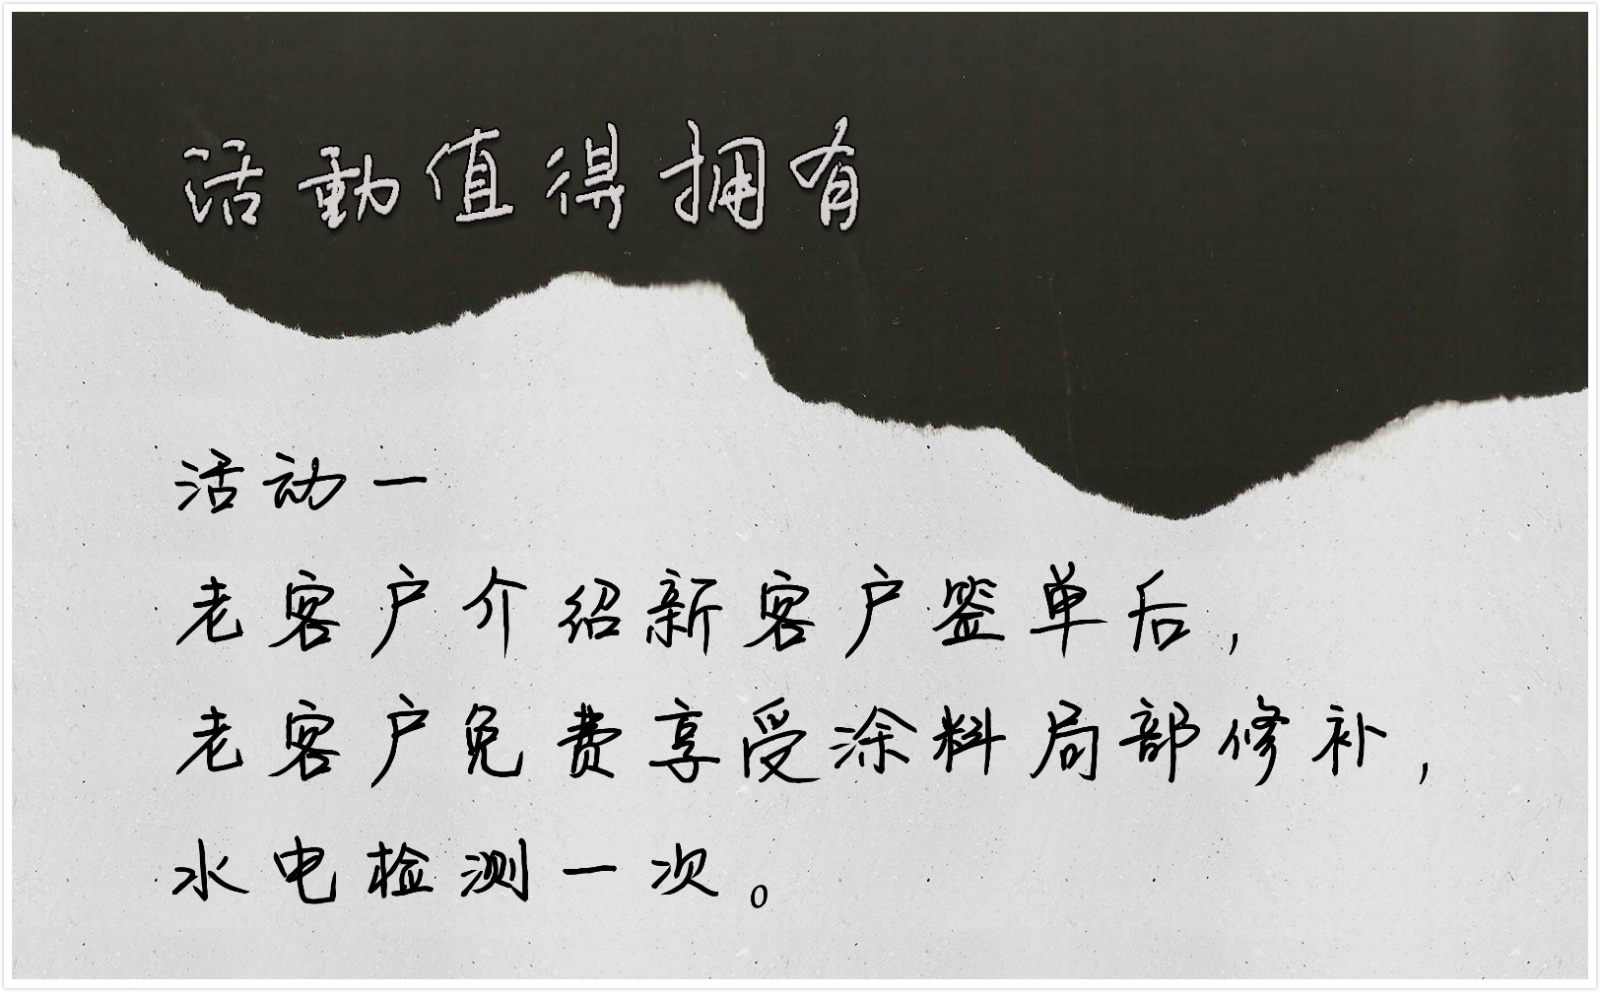 活動值得拥有
活动一
老客户介绍新客户签单后，
老客户免费享受涂料局部修补，
水电检测一次。